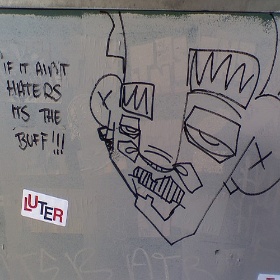 IF IT AIN'T
HATERS
ITS THE
BUFF!!!
LUTER